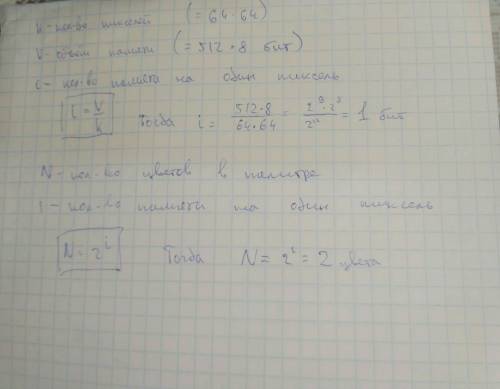 k - кол-во пикселей (= 64 · 64)
V - объём памяти (= 512 · 8 бит)
i - кол-во памяти на один пиксель
i = V/k Тогда i = 512·8/64·64 = 2⁹·2³/2¹² = 1 бит
N - кол-во цветов в палитре
i - кол-во памяти на один пиксель
N = 2ⁱ Тогда N = 2¹ = 2 цвета